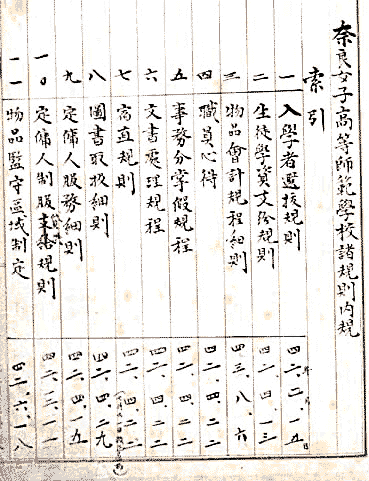 奈良女子高等師範學校諸規則内規
索引
一 入學者選抜規則 四二、二、一五
二 生徒學資支給規則 四二、四、一三
三 物品會計規程細則 四三、八、六
四 職員心得 四二、四、二二
五 事務分掌假規程 四二、四、二二
六 文書處理規程 四二、四、二二
七 宿直規則 四二、四、二二
八 圖書取扱細則 四二、四、二九
九 定傭人服務細則 四二、四、一五
一〇 定傭人制服規則 四二、三、一一
一一 物品監守區域制定 四二、六、一八